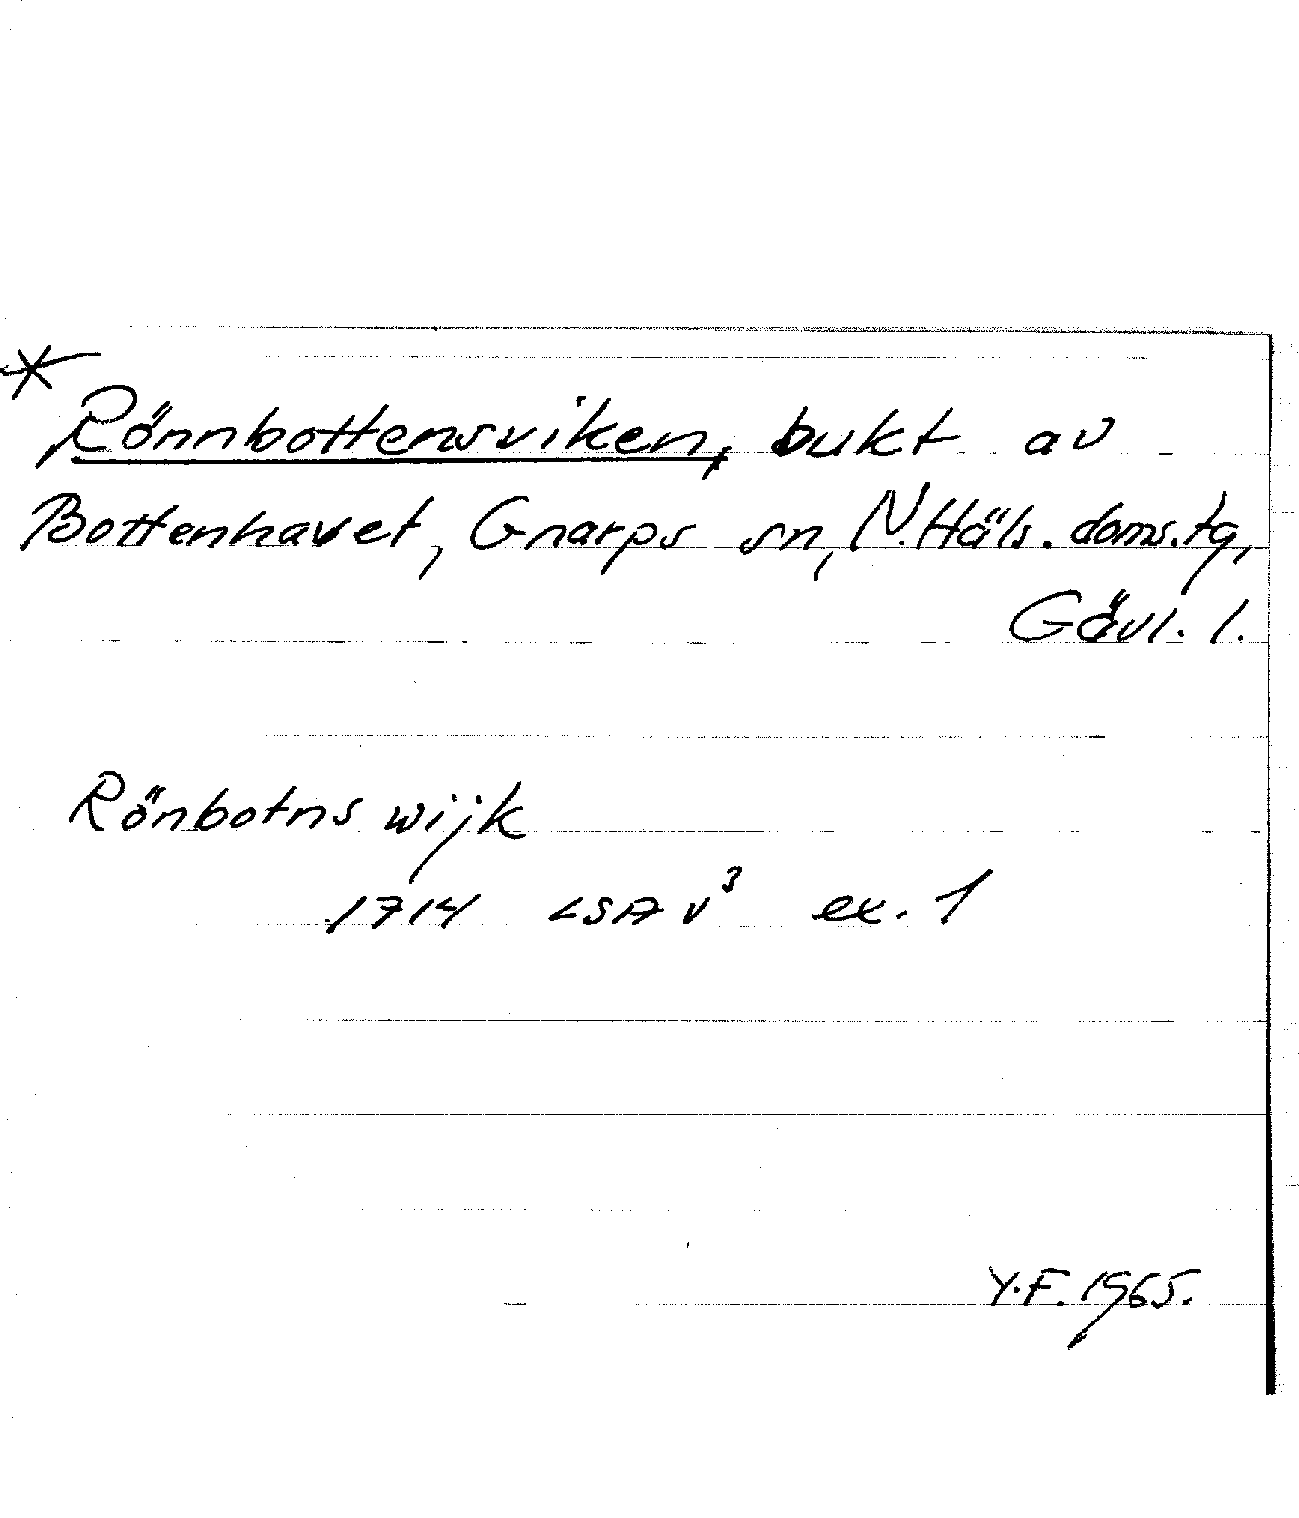 * Rönnbottensviken, bukt av
Bottenhavet, Gnarps sn, N.Häls. doms.tg,
Gävl. l.
Rönbotns wijk
1714 LSA V³ ex. 1
Y.F. 1965.